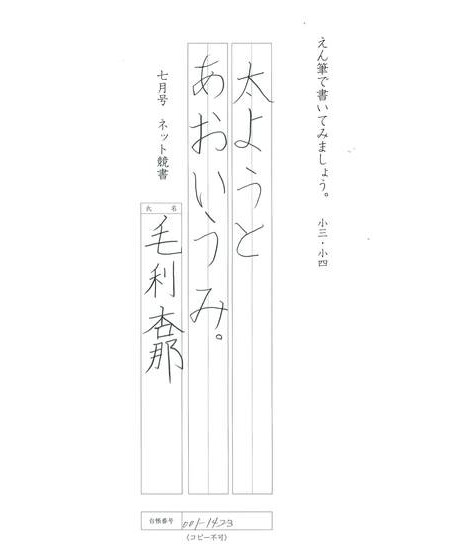 えん筆で書いてみましょう。 小三・小四
太ようと
あおいうみ。
七月号 ネット競書
氏名
毛利杏那
台帳番号 001-1423
(コピー不可)